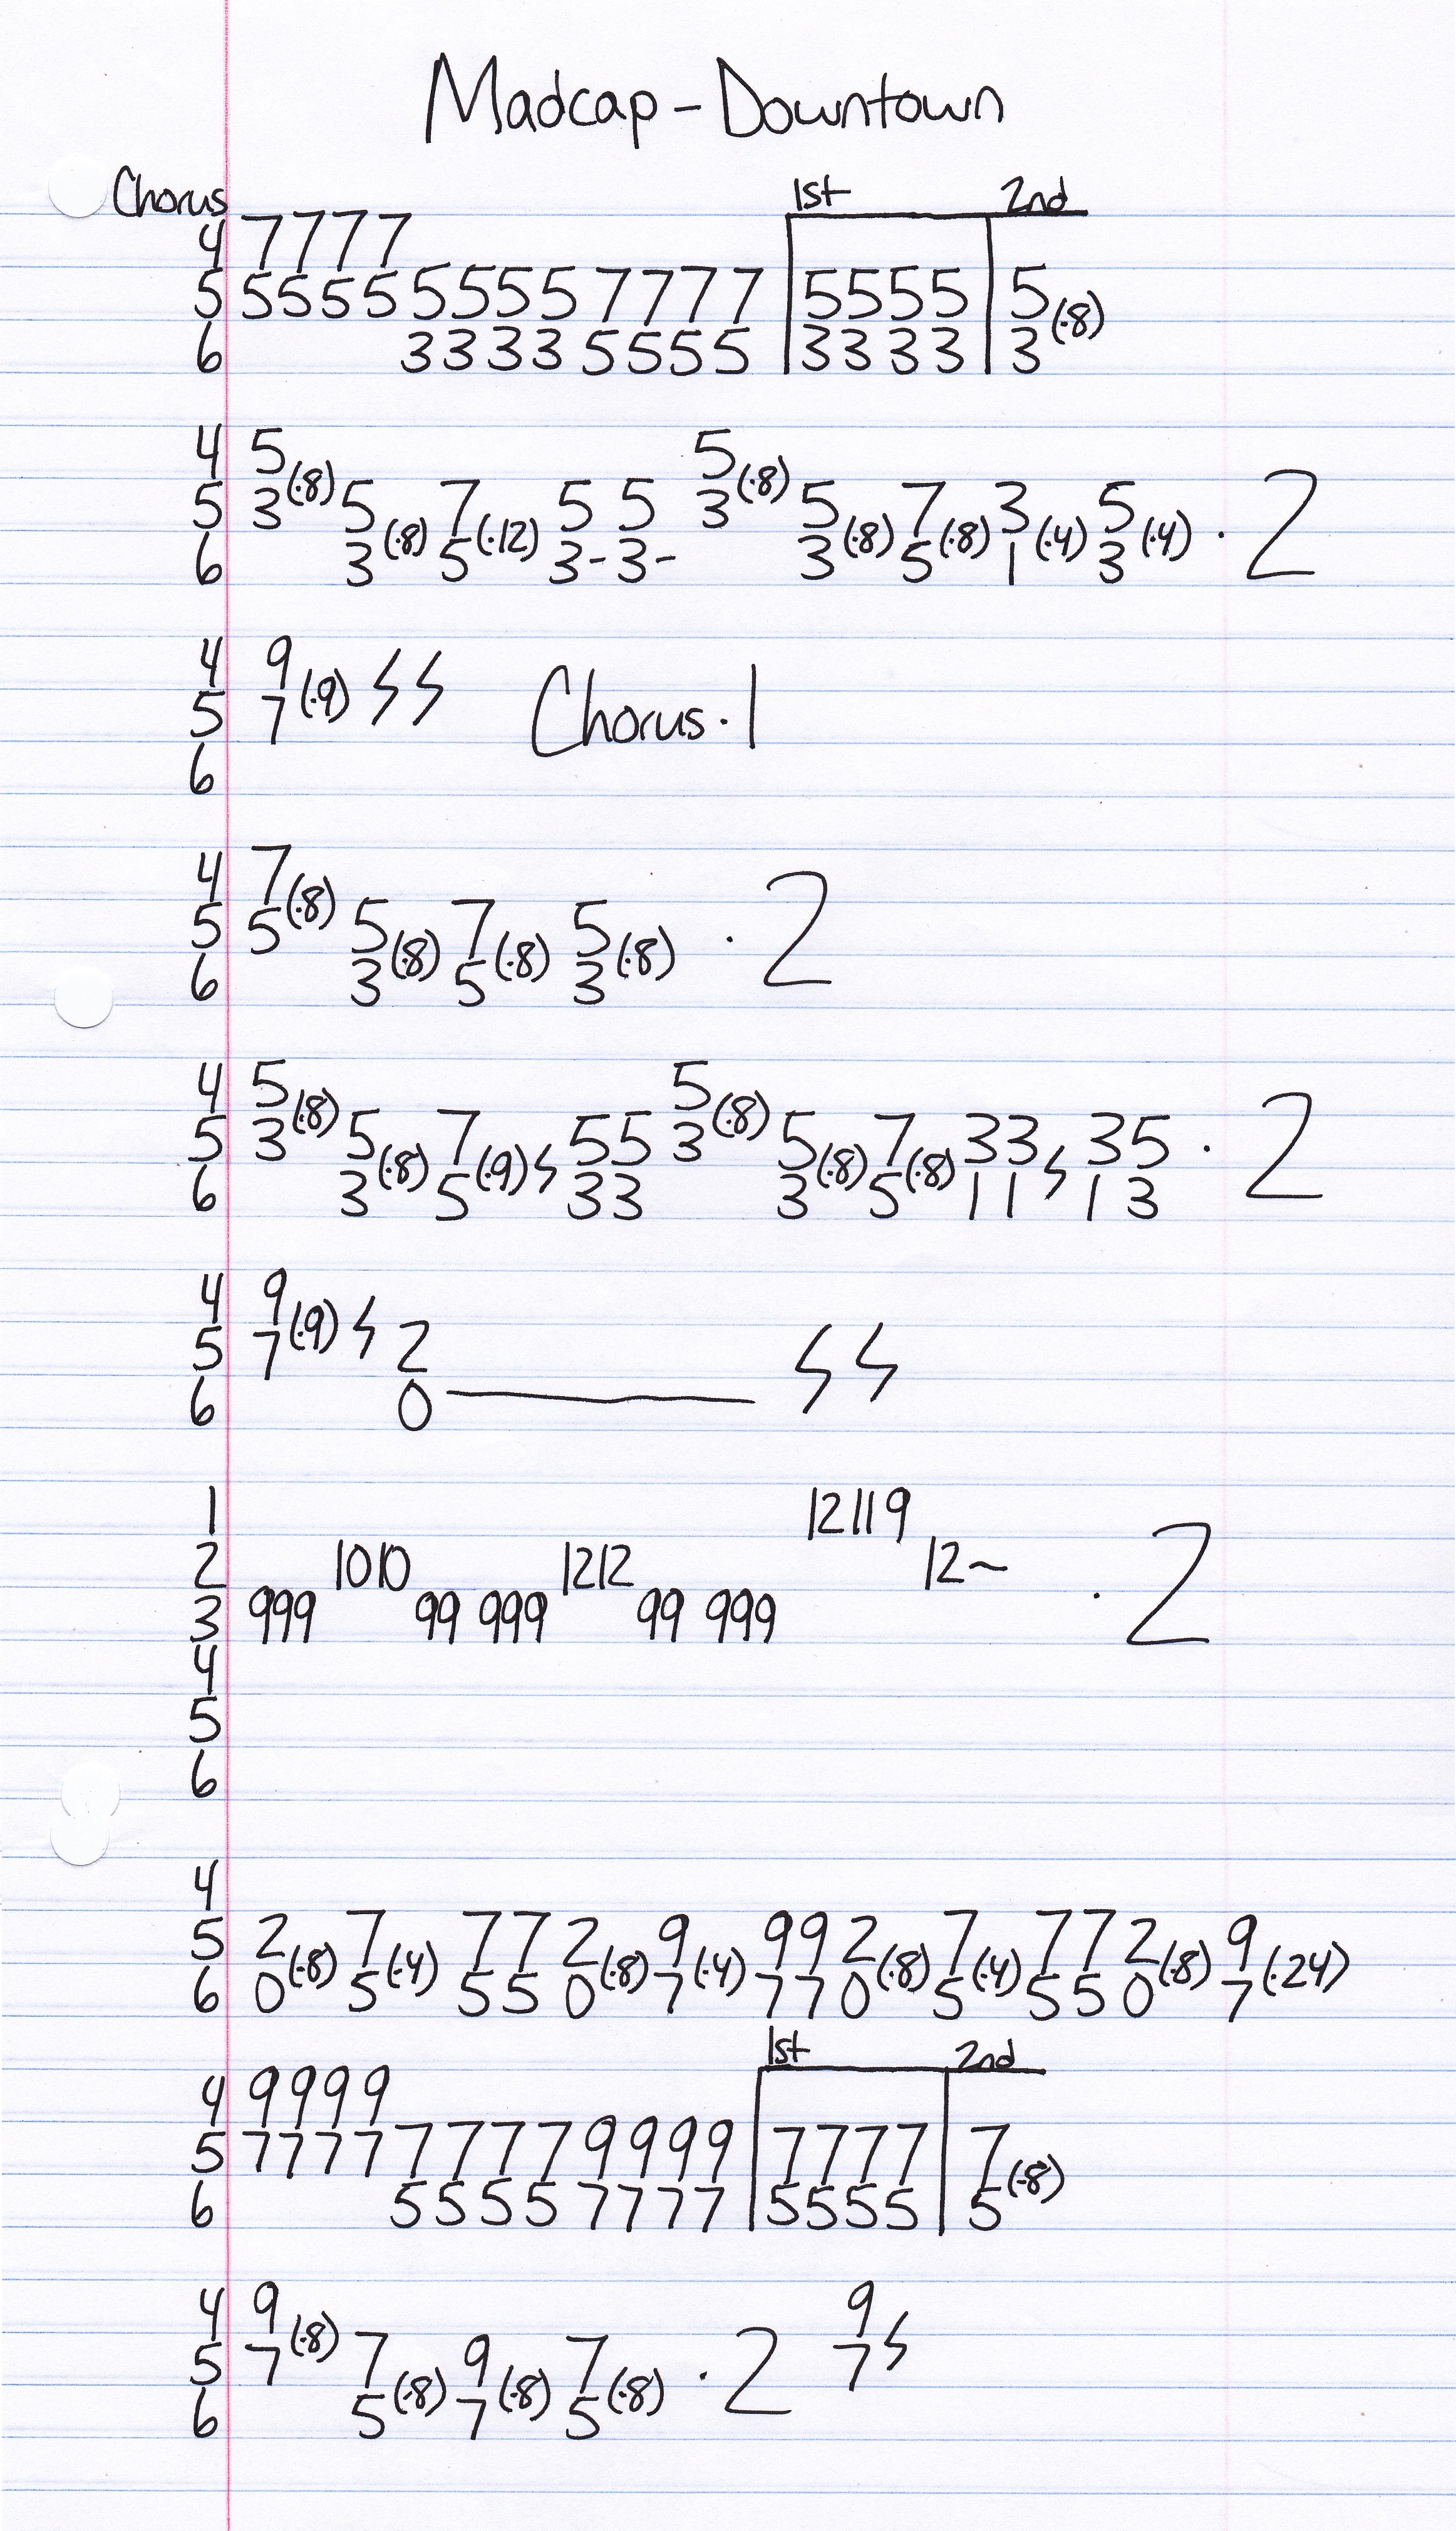 Madcap - Downtown
Chorus 1st 2nd
4 7777
5 5555 5555 7777 5555 5
6 3333 5555 3333 3 (·8)
4 5 5
5 3 (·8) 5 7 5 5 3 (·8) 5 7 3 5 · 2
6 3 (·8) 5 (·12) 3- 3- 3 (·8) 5 (·8) 1 (·4) 3 (·4)
4 9
5 7 (·9) Chorus · 1
6
4 7
5 5 (·8) 5 7 5 · 2
6 3 (·8) 5 (·8) 3 (·8)
4 5 5
5 3 (·8) 5 7 55 3 (·8) 5 7 33 35 · 2
6 3 (·8) 5 (·9) 33 3 (·8) 5 (·8) 11 13
4 9
5 7 (·9) 2
6 0
1 12 11 9
2 10 10 12 12 12~ · 2
3 999 99 999 99 999
4
5
6
4
5 2 7 77 2 9 99 2 7 77 2 9
6 0 (·8) 5 (·4) 55 0 (·8) 7 (·4) 77 0 (·8) 5 (·4) 55 0 (·8) 7 (·24)
1st 2nd
4 9999
5 7777 7777 9999 7777 7
6 5555 7777 5555 5 (·8)
4 9 9
5 7 (·8) 7 9 7 · 2 7
6 5 (·8) 7 (·8) 5 (·8)